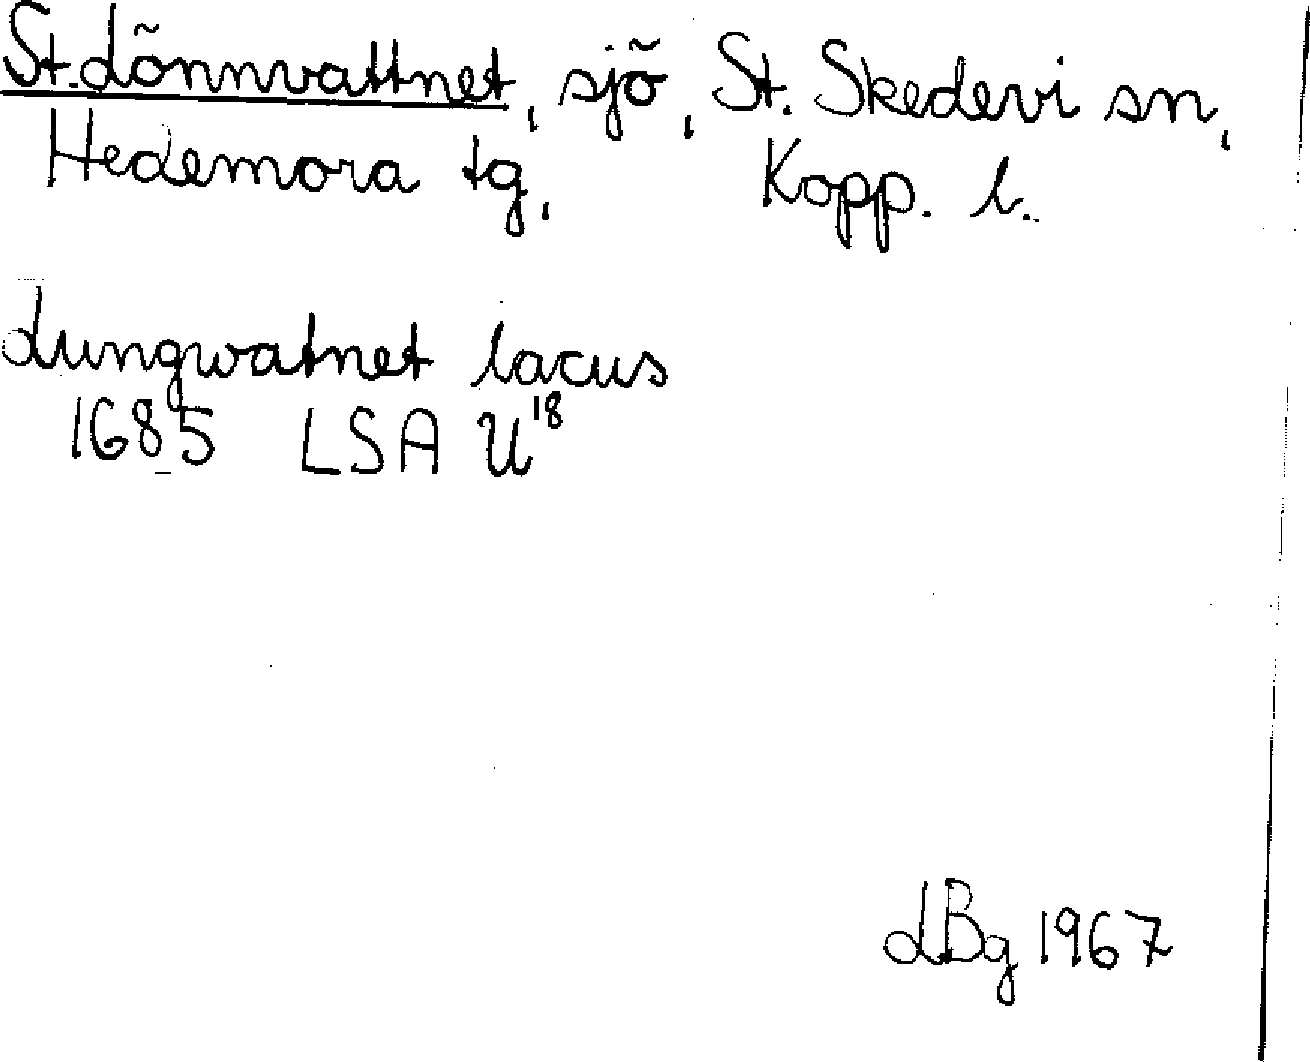 St. Lönnvattnet, sjö, St. Skedevi sn,
Hedemora tg, Kopp. l.
Lungwatnet lacus
1685 LSA U18
LBg 1967